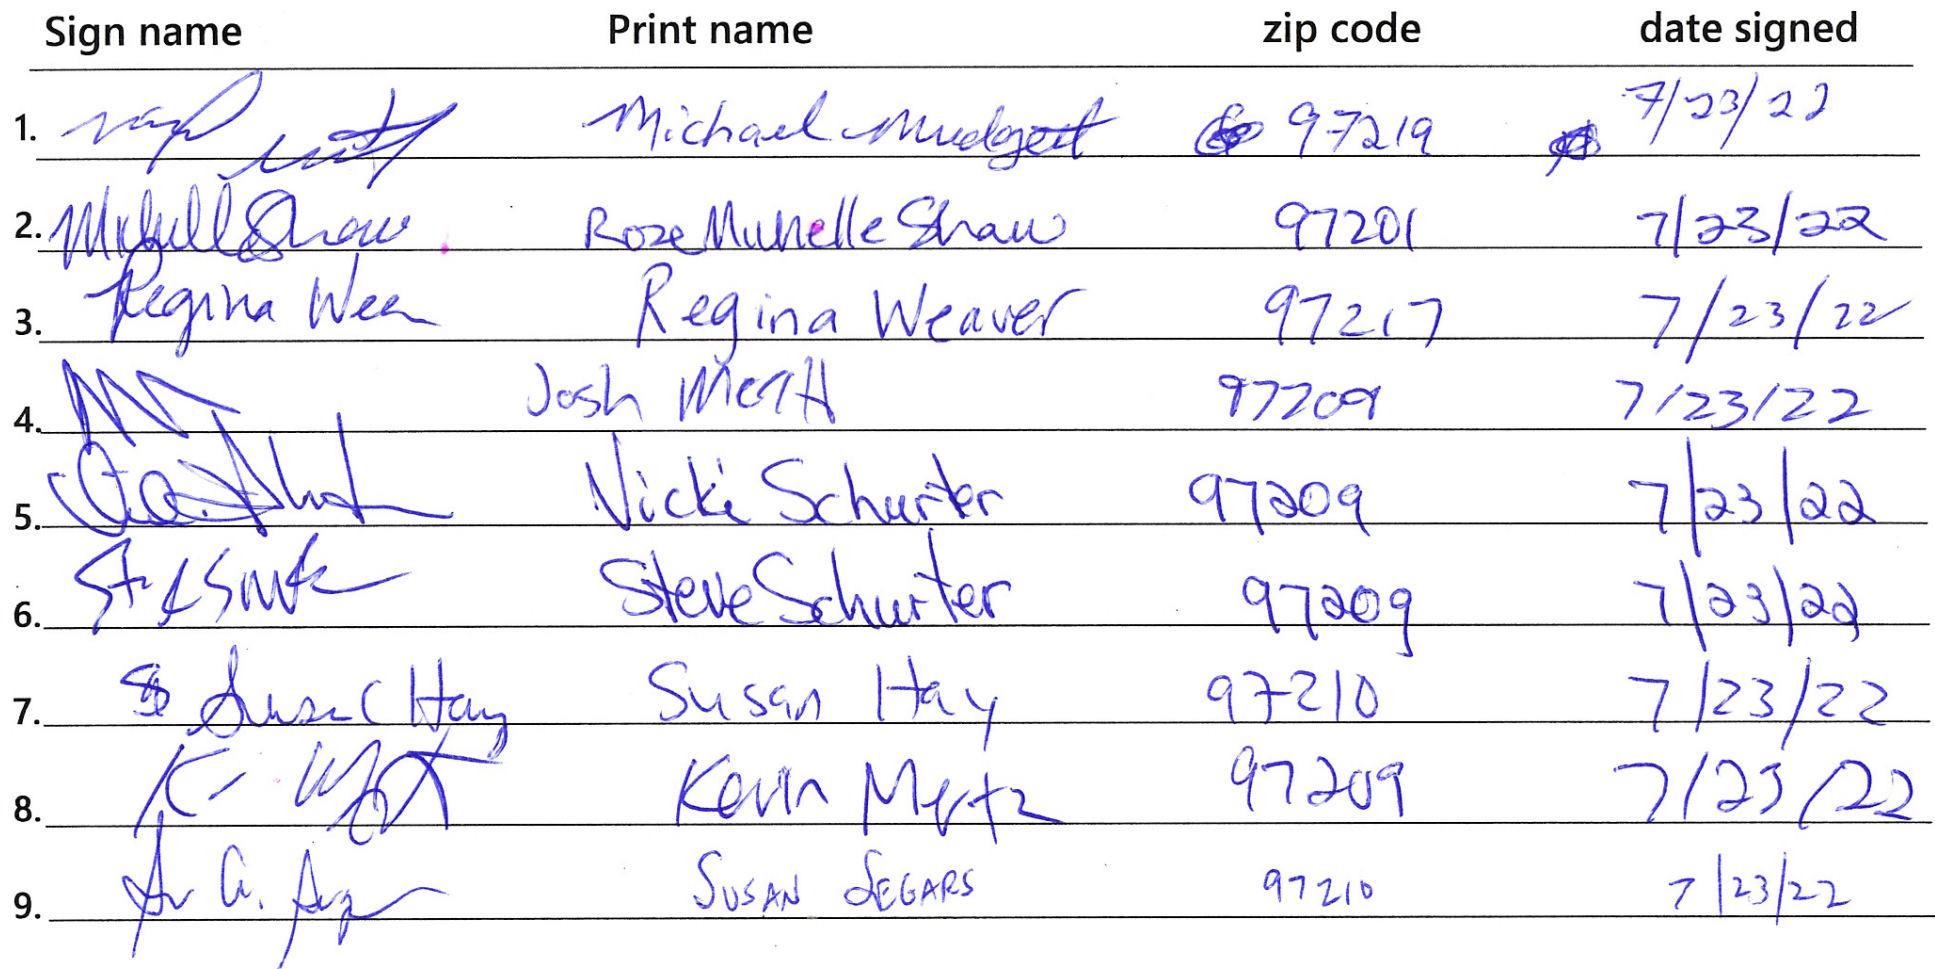 Sign name Print name zip code date signed
1. Michael Mudgett 97219 7/23/22
2. Michelle Shaw Roze Michelle Shaw 97201 7/23/22
3. Regina Regina Weaver 97217 7/23/22
4. Josh 97209 7/23/22
5. Vicki Schurter 97209 7/23/22
6. Steve Schurter 97209 7/23/22
7. Susan C Hay Susan Hay 97210 7/23/22
8. Kevin Mertz 97209 7/23/22
9. Susan Segars 97210 7/23/22